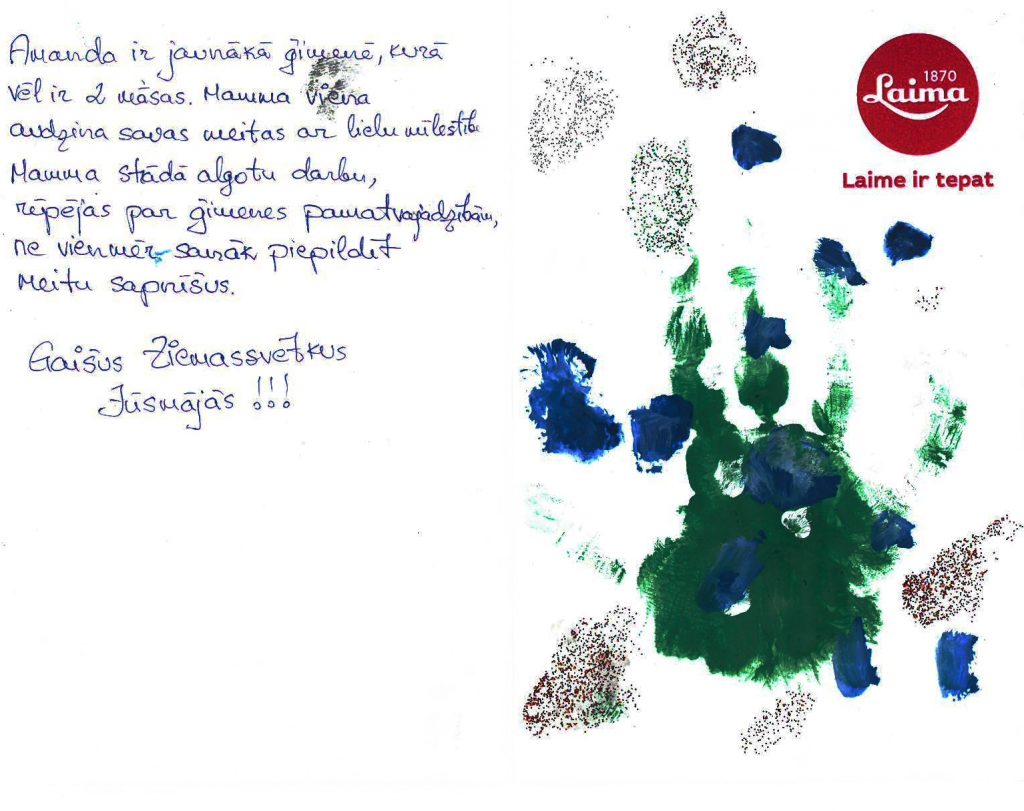 Amanda ir jaunākā ģimenē, kurā
vēl ir 2 māsas. Mamma viena
audzina savas meitas ar lielu mīlestību
Mamma strādā algotu darbu,
rūpējas par ģimenes pamatvajadzībām,
ne vienmēr sanāk piepildīt
meitu sapnīšus.
Gaišus Ziemassvētkus
Jūsmājās !!!
1870
Laima
Laime ir tepat